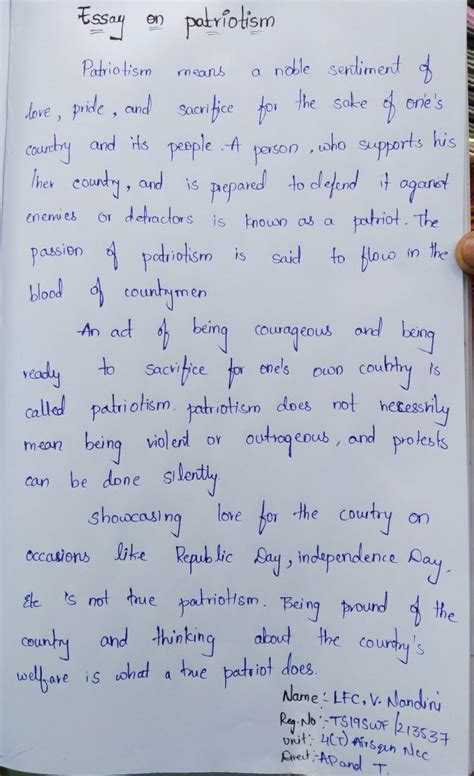 Essay on patriotism
Patriotism means a noble sentiment of
love, pride, and sacrifice for the sake of one's
country and its people. A person, who supports his
/her country, and is prepared to defend it against
enemies or detractors is known as a patriot. The
passion of patriotism is said to flow in the
blood of countrymen
An act of being courageous and being
ready to sacrifice for one's own country is
called patriotism. patriotism does not necessrily
mean being violent or outrogeous, and protests
can be done silently.
Showcasing love for the country on
occasions like Republic Day, independence Day.
Etc is not true patriotism. Being pround of the
country and thinking about the country's
welfare is what a true patriot does.
Name:- LFC. V. Nandini
Reg. No:- TS19SWF/213537
unit:- 4(T) Air sqn Ncc
Direct:- AP and T.